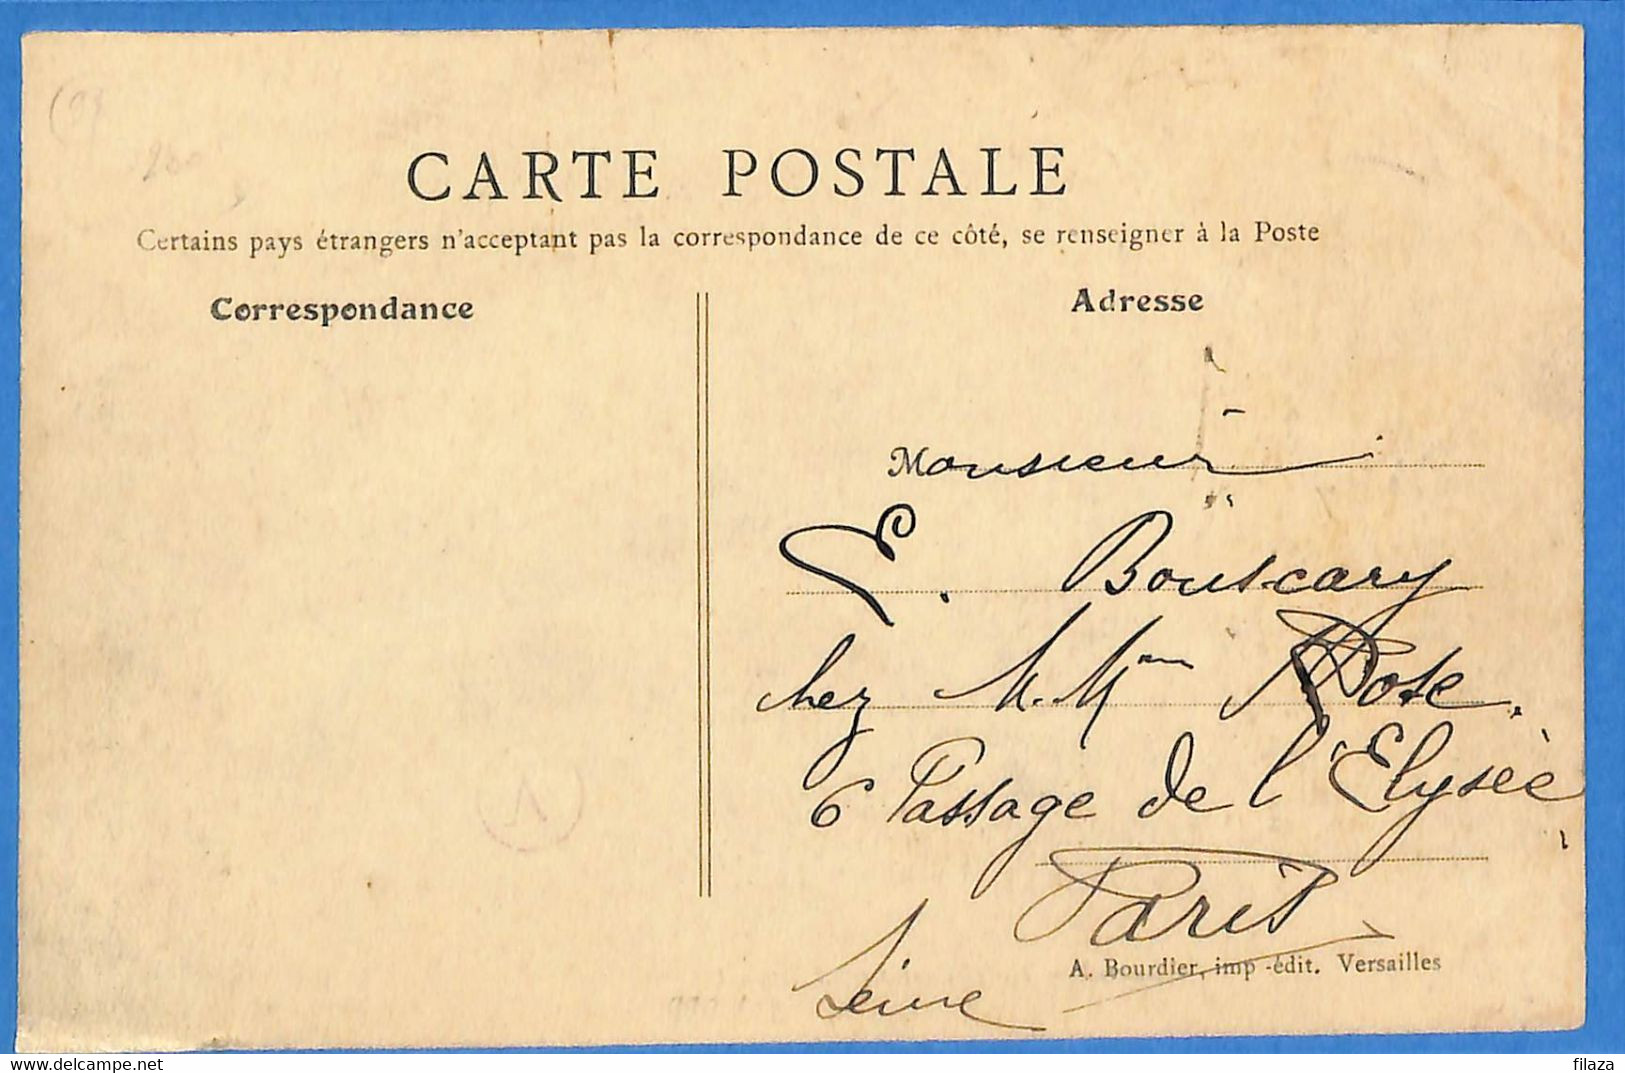 CARTE POSTALE
Certains pays étrangers n'acceptant pas la correspondance de ce côté, se renseigner à la Poste
Correspondance
Adresse
Monsieur
E. Bouscary
chez M. Mme Rose.
6 Passage de l'Elysée
Paris
A. Bourdier, imp-édit. Versailles
Seine
delcampe.net
filaza